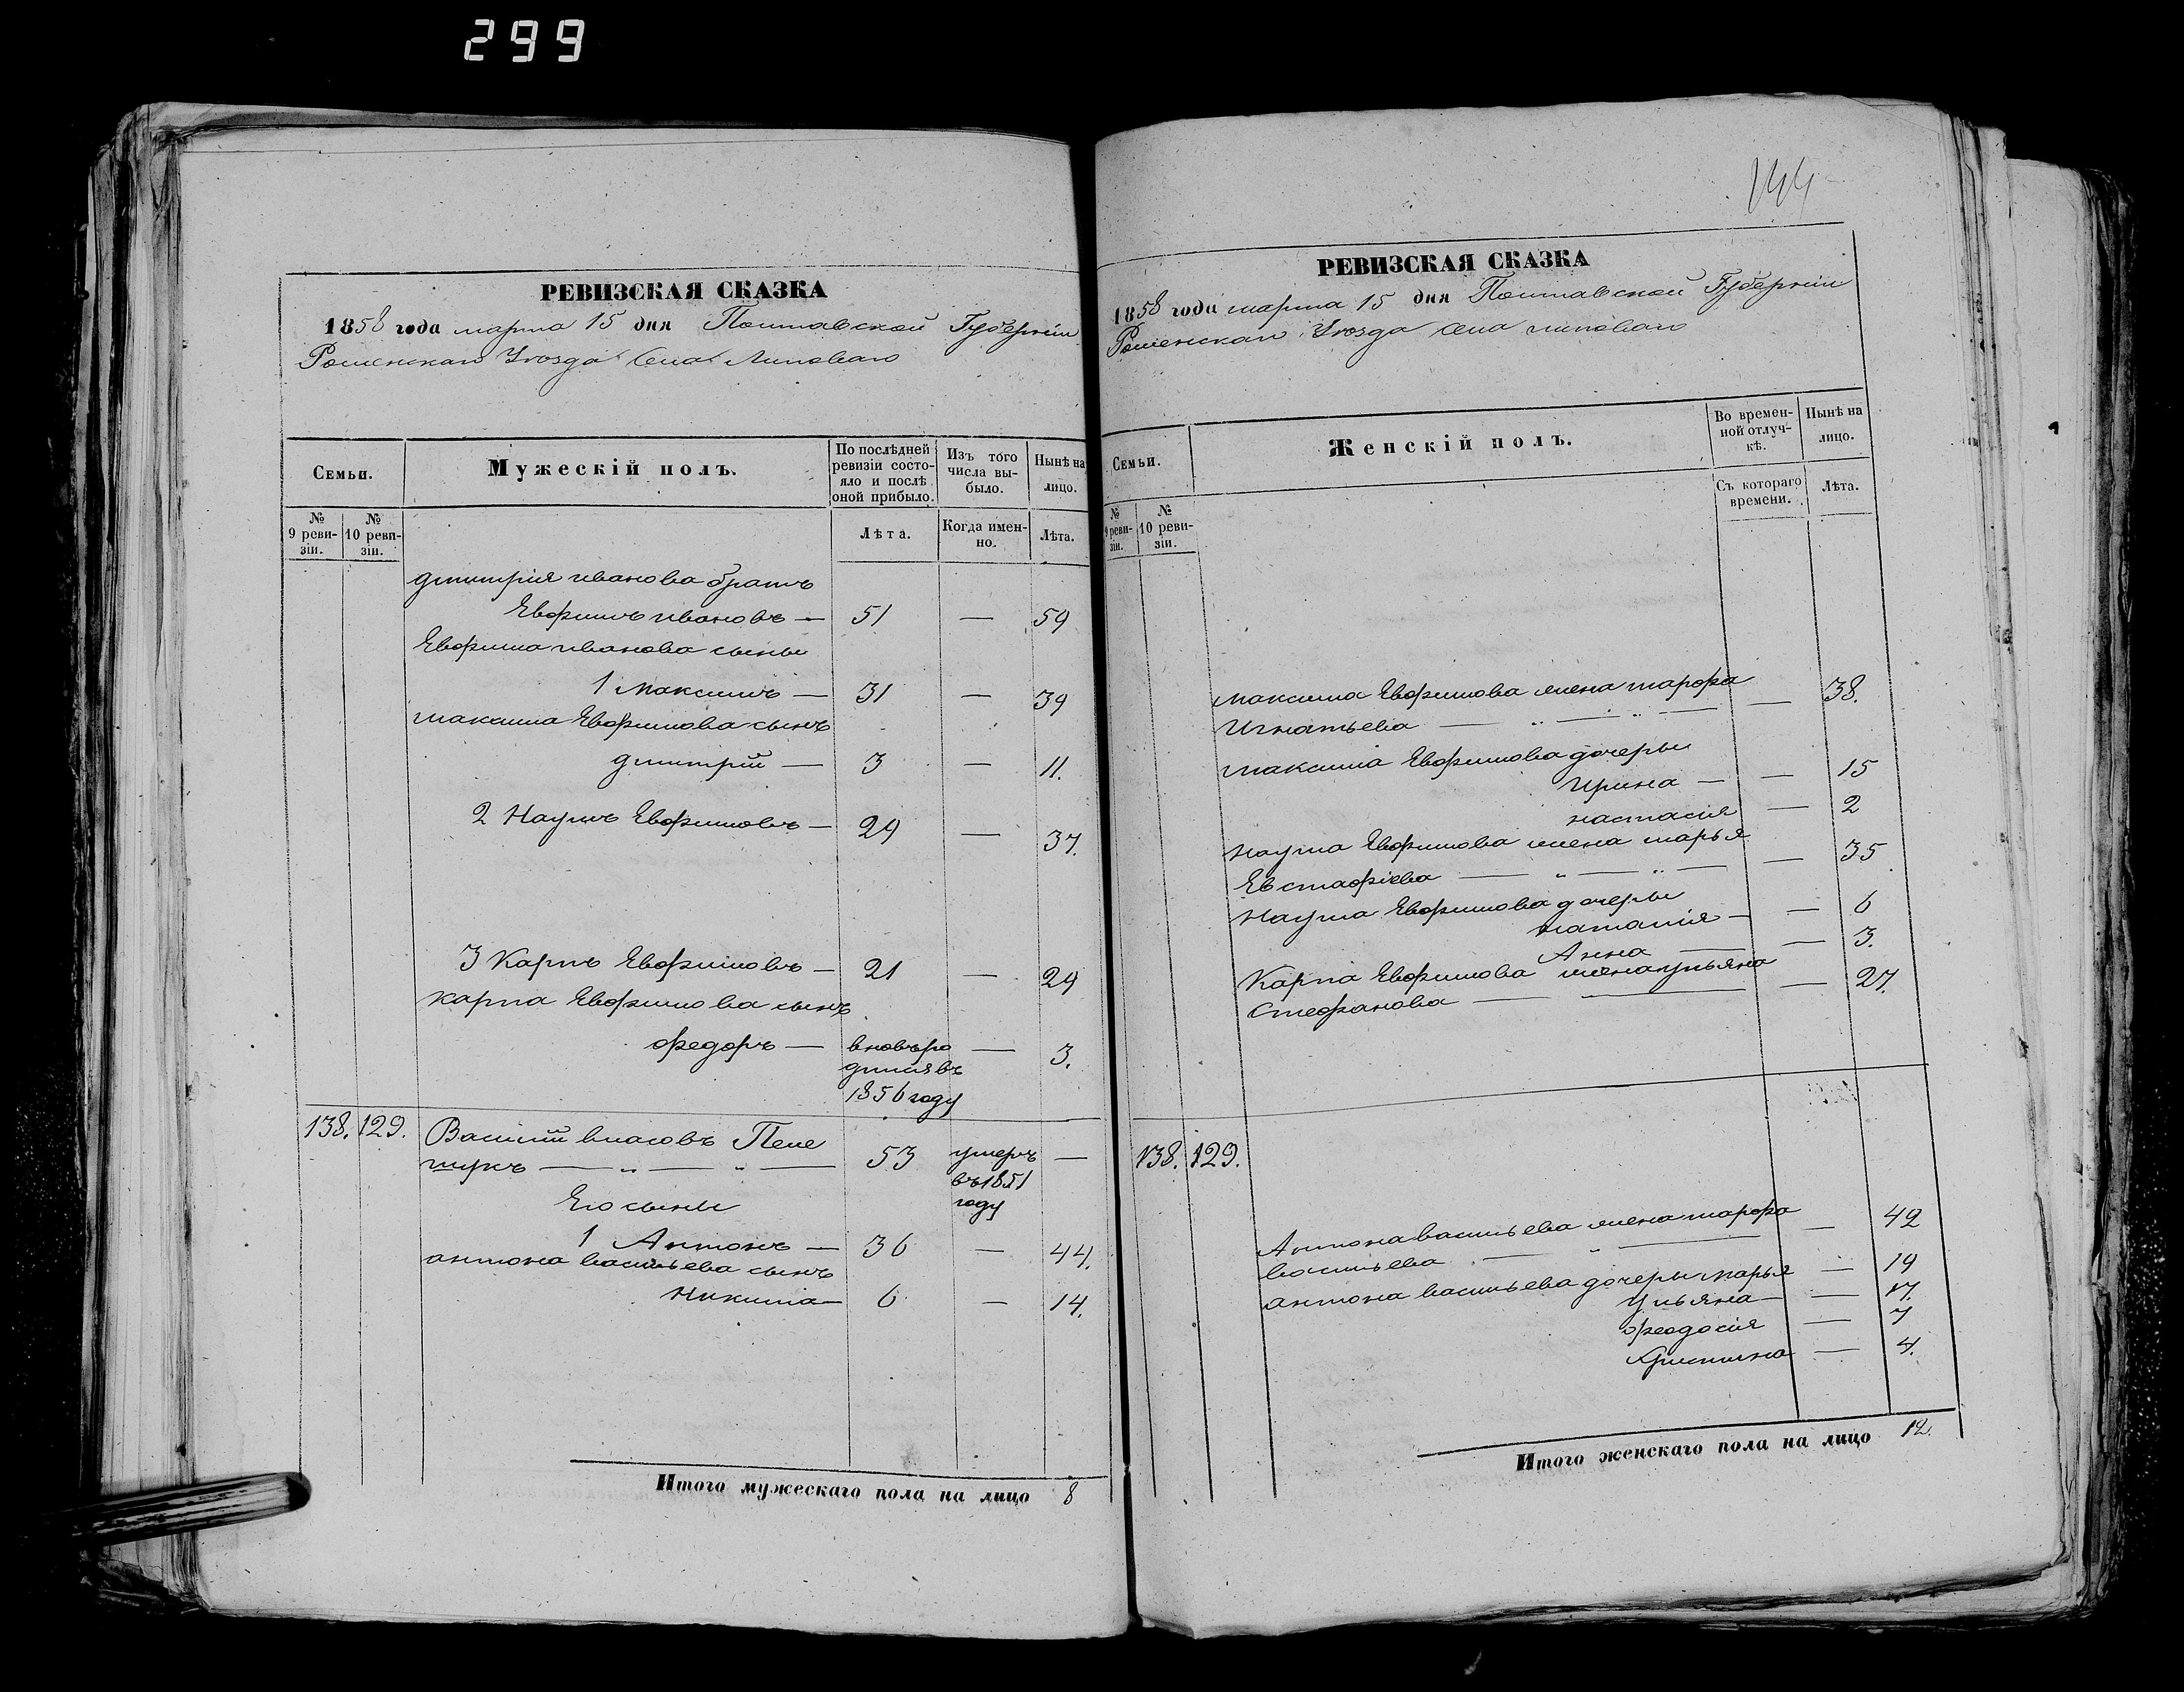 299
РЕВИЗСКАЯ СКАЗКА
1858 года марта 15 дня Полтавской Губернiи
Роменскаго Уезда Села Липоваго
Семьи.
Мужескiй полъ.
По послѣдней ревизiи состояло и послѣ оной прибыло.
Изъ того числа выбыло.
Нынѣ на лицо.
№ 9 ревизiи.
№ 10 ревизiи.
Лѣта.
Когда именно.
Лѣта.
дмитрiя иванова братъ
Евфимъ ивановъ — 51 — 59
Евфима иванова сыны
1 Максимъ — 31 — 39
максима Евфимова сынъ
дмитрiй — 3 — 11.
2 Наумъ Евфимовъ — 29 — 37.
3 Карпъ Евфимовъ — 21 — 29
карпа Евфимова сынъ
федоръ — вновьро — 3.
дился въ
1856 году
138. 129. Василiй власовъ Пеле
щукъ — „ — „ — 53 умеръ —
въ 1851
году
Его сыны
1 Антонъ — 36 — 44.
антона васильева сынъ
Никита — 6 — 14.
Итого мужескаго пола на лицо 8
144
РЕВИЗСКАЯ СКАЗКА
1858 года марта 15 дня Полтавской Губернiи
Роменскаго Уезда Села липоваго
Семьи.
Женскiй полъ.
Во временной отлучкѣ.
Нынѣ на лицо.
№ 9 ревизiи.
№ 10 ревизiи.
Съ котораго времени.
Лѣта.
максима Евфимова жена марфа
Игнатьева — „ — „ — — 38.
максима Евфимова дочеры
Ирина — — 15
настасiя — 2
наума Евфимова жена марья
Евстафiева — „ — „ — — 35
Наума Евфимова дочеры
наталiя — — 6
Анна — — 3.
Карпа Евфимова жена ульяна
Стефанова — — — 27.
138. 129.
Антона васильева жена марфа
васильева — „ — — 42
антона васильева дочеры марья — 19
Ульяна — — 17.
феодосiя — 7
Христина — 4.
Итого женскаго пола на лицо 12.